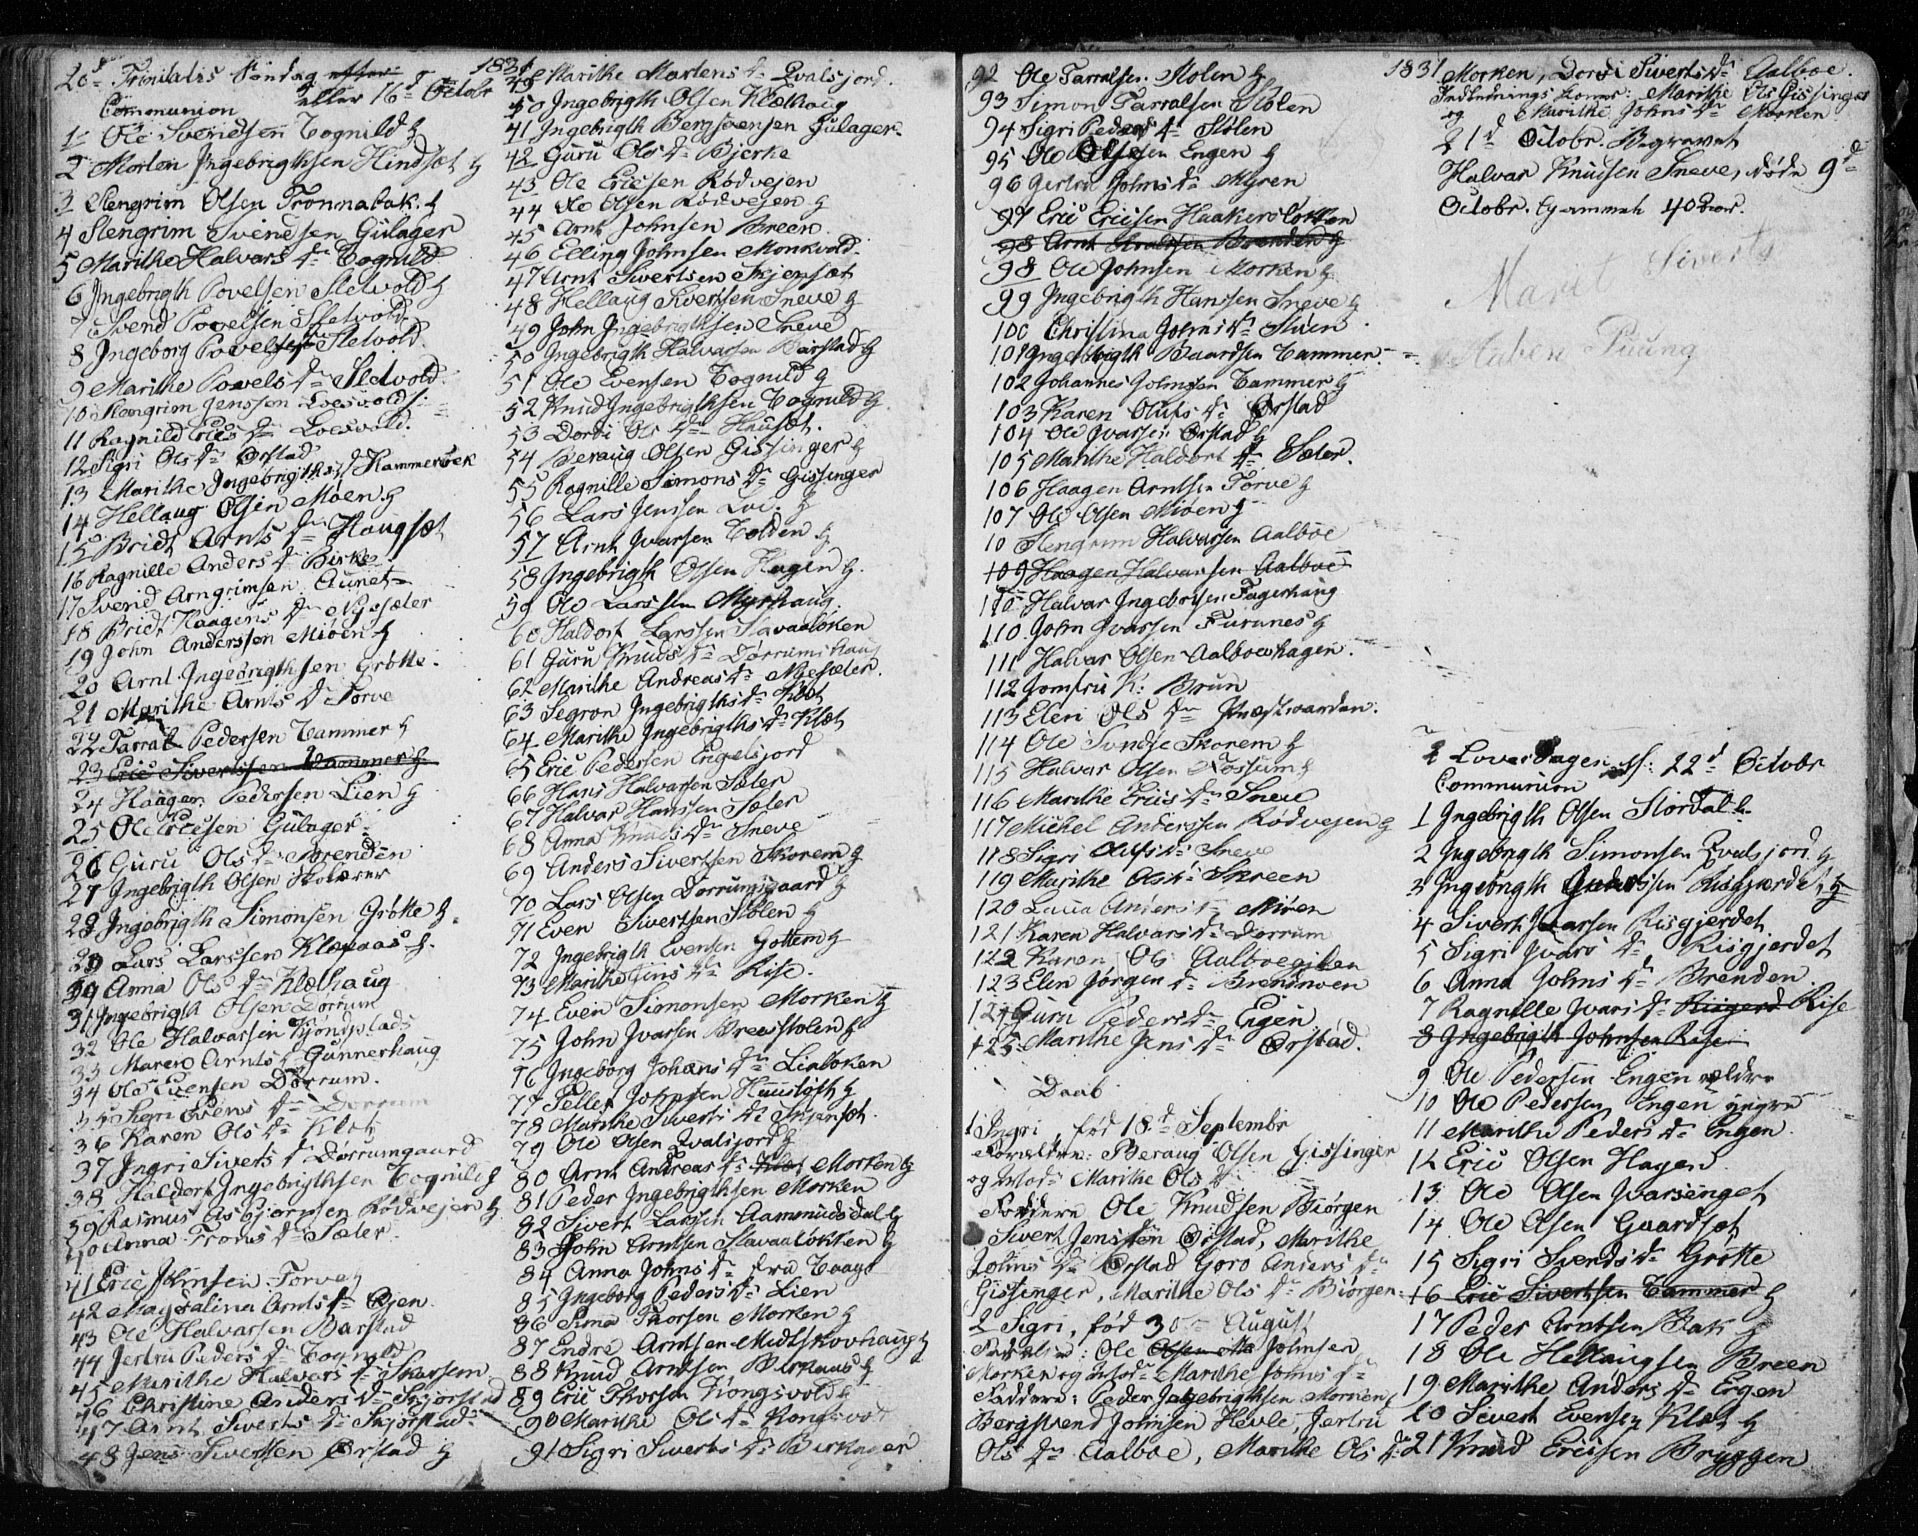 20d Trinitatis Söndag efter
eller 16d Octobr
1831
Communion
1 Ole Svendsen Tognild h
2 Morten Ingebrigthsen Hindsæt h
3 Stengrim Olsen Tronnabak h
4 Stengrim Svendsen Gulager
5 Marithe Halvars Dr Tognild
6 Ingebrigth Povelsen Sletvold h
7 Svend Povelsen Sletvold
8 Ingeborg Povelsen Sletvold
9 Marithe Povels Dr Sletvold
10 Stengrim Jenssen Loesvold
11 Ragnild Erics Dr Loesvold
12 Sigri Ols Dr Ørstad
13 Marithe Ingebrigths D Hammerbek
14 Hellaug Olsen Möen h
15 Bridt Arnts Dr Haugsæt
16 Ragnille Anders Dr Birke
17 Svend Arngrimsen Aunet
18 Bridt Haagens Dr Nysæter
19 John Anderssen Miöen h
20 Arnt Ingebrigthsen Grötte
21 Marithe Arnts Dr Torve
22 Tarrald Pedersen Tammer h
23 Eric Sivertssen Tammer h
24 Haagen Pedersen Lien h
25 Ole Ericsen Gulager
26 Guru Ols Dr Brenden
27 Ingebrigth Olsen
28 Ingebrigth Simonsen Grötte h
29 Lars Larssen Kleppaas h
30 Anna Ols Dr Klæthaug
31 Ingebrigth Olsen Dörrum
32 Ole Halvarssen
33 Maren Arnts Dr Gunnerhaug
34 Ole Evensen Dörrum
35 Sigri Svens Dr Dörrum
36 Karen Ols Dr Klæt
37 Ingri Siverts D Dörrumgaard
38 Haldort Ingebrigthsen Tognild h
39 Rasmus Asbjörnsen Rödvejen h
40 Anna Trons Dr Sæter
41 Eric Johnsen Torve h
42 Magdalina Arnts Dr Ejen
43 Ole Halvarsen Barstad
44 Jertru Peders Dr Tognild
45 Marithe Halvars Dr Skorem
46 Christine Anders Dr Skjörstad
47 Arnt Siverts Dr Skjörstad
48 Jens Sivertsen Ørstad h
39 Marithe Martens Dr Qvalsjord
40 Ingebrigth Olsen Klæthaug
41 Ingebrigth Bergsvensen Gulager
42 Guru Ols Dr Bjerke
43 Ole Ericsen Rödvejen
44 Ole Olsen Rödvejen h
45 Arnt Johnsen Breen
46 Elling Johnsen Monkvold
47 Arnt Sivertsen Skjensæt
48 Hellaug Sivertsen Sneve h
49 John Ingebrigthsen Sneve
50 Ingebrigth Halvarsen Barstad h
51 Ole Evensen Tognild h
52 Knud Ingebrigthsen Tognild h
53 Dordi Ols Dr Hausæt
54 Beraug Olsen Gissinger h
55 Ragnille Simons Dr Gissinger
56 Lars Jenssen Loe h
57 Arnt Ivarsen Tolden h
58 Ingebrigth Olsen Hagen h
59 Ole Larssen Myrhaug
60 Haldort Larssen Slavaalöken
61 Guru Knuds Dr Dörrumshaug
62 Marithe Andreas Dr Nysæter
63 Segron Ingebrigths Dr Klæt
64 Marithe Ingebrigths Dr Klæt
65 Eric Pedersen Engelsjord
66 Hans Halvarsen Sæter
67 Halvar Hanssen Sæter
68 Anna Knuds Dr Sneve
69 Anders Sivertsen Skorem h
70 Lars Olsen Dörrumsgaard h
71 Even Sivertsen Stölen h
72 Ingebrigth Evensen Gottem h
73 Marithe Jens Dr Rise
74 Even Simonsen Morken h
75 John Ivarsen Breestolen h
76 Ingeborg Johans Dr Lialöken
77 Peller Johnsen h
78 Marithe Siverts Dr Skjensæt
79 Ole Olsen Qvalsjord h
80 Arnt Andreas Dr Klæt Morken h
81 Peder Ingebrigthsen Morken
82 Sivert Larsen Aammudsdal h
83 John Arntsen Slavaalökken h
84 Anna Johns Dr fra Haagt
85 Ingeborg Peders Dr Lien
86 Sima Thorsen Morken h
87 Endre Arntsen Midtskovhaug h
88 Knud Arntsen Birkaas h
89 Eric Thorsen Kongsvold h
90 Marithe Ols Dr Kongsvold
91 Sigri Siverts Dr Birkager
92 Ole Tarralsen Stölen h
93 Simon Tarralsen Stölen
94 Sigri Peders Dr Stölen
95 Ole Olsen Engen h
96 Gertru Johns Dr Myren
97 Eric Ericsen Haakerslökken
98 Arnt Brenden h
98 Ole Johnsen Morken h
99 Ingebrigth Hanssen Sneve h
100 Christina Johns Dr Stuen
101 Ingebrigth Baardsen Tammer
102 Johannes Johnsen Tammer h
103 Karen Olufs Dr Ørstad
104 Ole Ivarsen Ørstad h
105 Marithe Haldort Dr Sæter
106 Haagen Arntsen Torve h
107 Ole Olsen Miöen h
10 Stengrim Halvarsen Aalboe
109 Haagen Halvarsen Aalboe
110 Halvar Ingebrigtsen Fagerhaug
110 John Ivarsen Furunes h
111 Halvar Olsen Aalboehagen
112 Jomfrue K: Brun
113 Eleri Ols Dr Præstvarden
114 Ole Svendse Skorem h
115 Halvar Olsen Fossum h
116 Marithe Erics Dr Sneve
117 Michel Anderssen Rödvejen h
118 Sigri Olufs Dr Sneve
119 Marithe Ols Dr Skreen
120 Laua Anders Dr Miöen
121 Karen Halvars Dr Dörrum
122 Karen Ols Aalboegiken
123 Elen Jörgen Dr
124 Guru Peders Dr Engen
125 Marithe Jens Dr Ørstad
Daab
1 Ingri född 18d Septembr
Forældre: Beraug Olsen Gissinger
og Mod: Marithe Ols Dr
Faddere Ole Knudsen Biörgen
Sivert Jenssen Ørstad, Marithe
Johns Dr Ørstad Goro Anders Dr
Gissinger, Marithe Ols Dr Biörgen
2 Sigri, föd 30 August
Forældre: Ole Olsen Mo Johnsen
Morken og Mod: Marithe Johns Dr
Faddere: Peder Ingebrigthsen Morken,
Bergsvend Johnsen Hevle, Jertru
Ols Dr Aalboe, Marithe Ols Dr
1831
Morken, Dordi Siverts Dr Aalboe.
Indlednings koner: Marithe Ols Gissinger
og Marithe Johns Dr Morken
21d Octobr. Begravet
Halvar Knudsen Sneve, döde 9d
Octobr. gammel 40 aar.
Marit Siverts
Haben Puung
Löverdagen d: 22d Octobr
Communion
1 Ingebrigth Olsen Stordal h
2 Ingebrigth Simonsen Qvalsjord h
3 Ingebrigth Risgjærdet h
4 Sivert Ivarsen Risgjerdet
5 Sigri Ivars Dr Risgjerdet
6 Anna Johns Dr Brenden
7 Ragnille Ivars Dr Risgerd Rise
8 Ingebrigth Johnsen Rise
9 Ole Pedersen Engen ældre
10 Ole Pedersen Engen yngre
11 Marithe Peders Dr Engen
12 Eric Olsen Hagen
13 Ole Olsen Ivarsenget
14 Ole Olsen Gaardsæt
15 Sigri Svends Dr Grötte
16 Eric Sivertsen Tammer h
17 Peder Arntsen Bak h
18 Ole Hellaugsen Breen
19 Marithe Anders Dr Engen
20 Sivert Evensen Klæt h
21 Knud Ericsen Bryggen